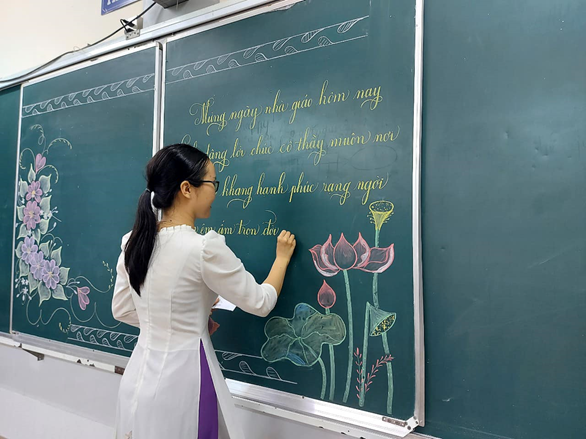 Mừng ngày nhà giáo hôm nay
tặng lời chúc cô thầy muôn nơi
khang hạnh phúc rạng ngời
ấm tròn đời